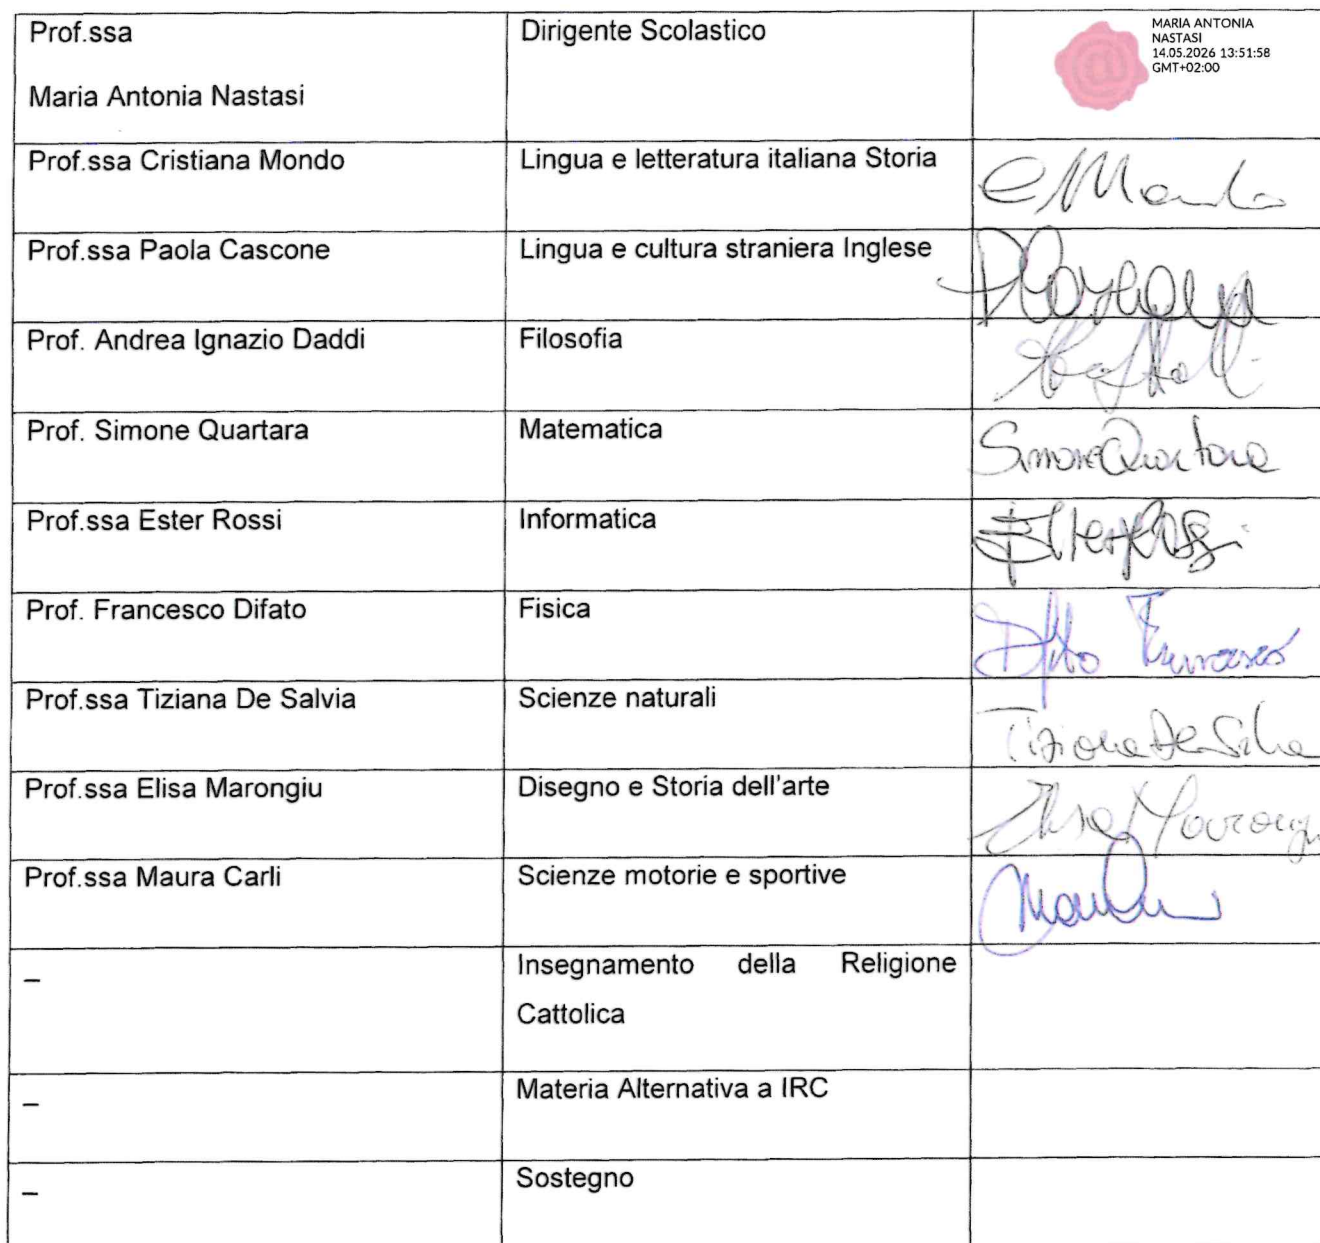 Prof.ssa
Maria Antonia Nastasi
Dirigente Scolastico
MARIA ANTONIA
NASTASI
14.05.2026 13:51:58
GMT+02:00
Prof.ssa Cristiana Mondo
Lingua e letteratura italiana Storia
Prof.ssa Paola Cascone
Lingua e cultura straniera Inglese
Prof. Andrea Ignazio Daddi
Filosofia
Prof. Simone Quartara
Matematica
Simone Quartara
Prof.ssa Ester Rossi
Informatica
Ester Rossi
Prof. Francesco Difato
Fisica
Prof.ssa Tiziana De Salvia
Scienze naturali
Prof.ssa Elisa Marongiu
Disegno e Storia dell'arte
Prof.ssa Maura Carli
Scienze motorie e sportive
–
Insegnamento della Religione
Cattolica
–
Materia Alternativa a IRC
–
Sostegno